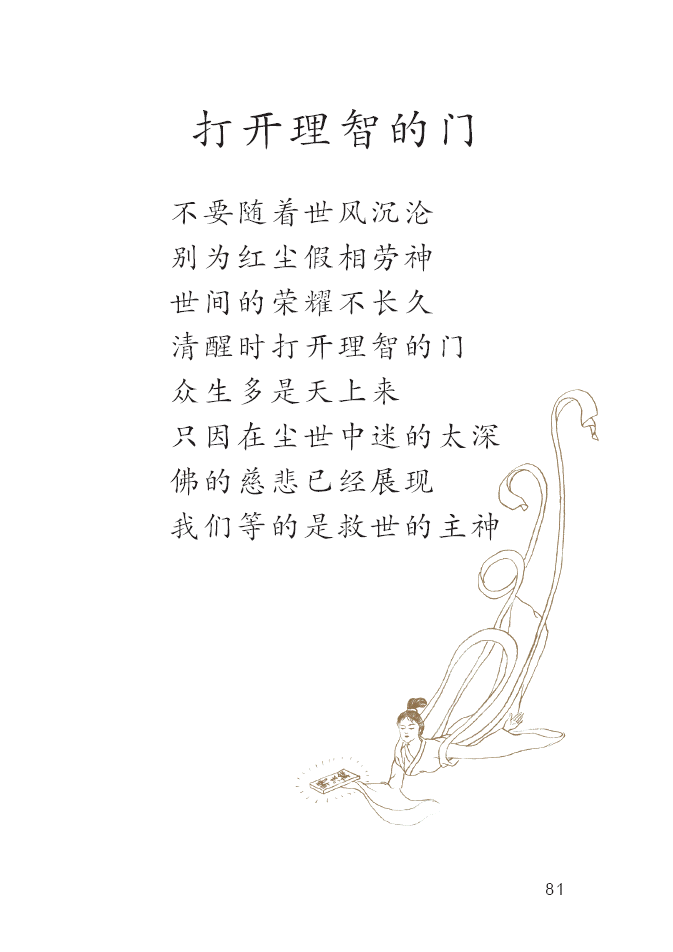 打开理智的门
不要随着世风沉沦
别为红尘假相劳神
世间的荣耀不长久
清醒时打开理智的门
众生多是天上来
只因在尘世中迷的太深
佛的慈悲已经展现
我们等的是救世的主神
81